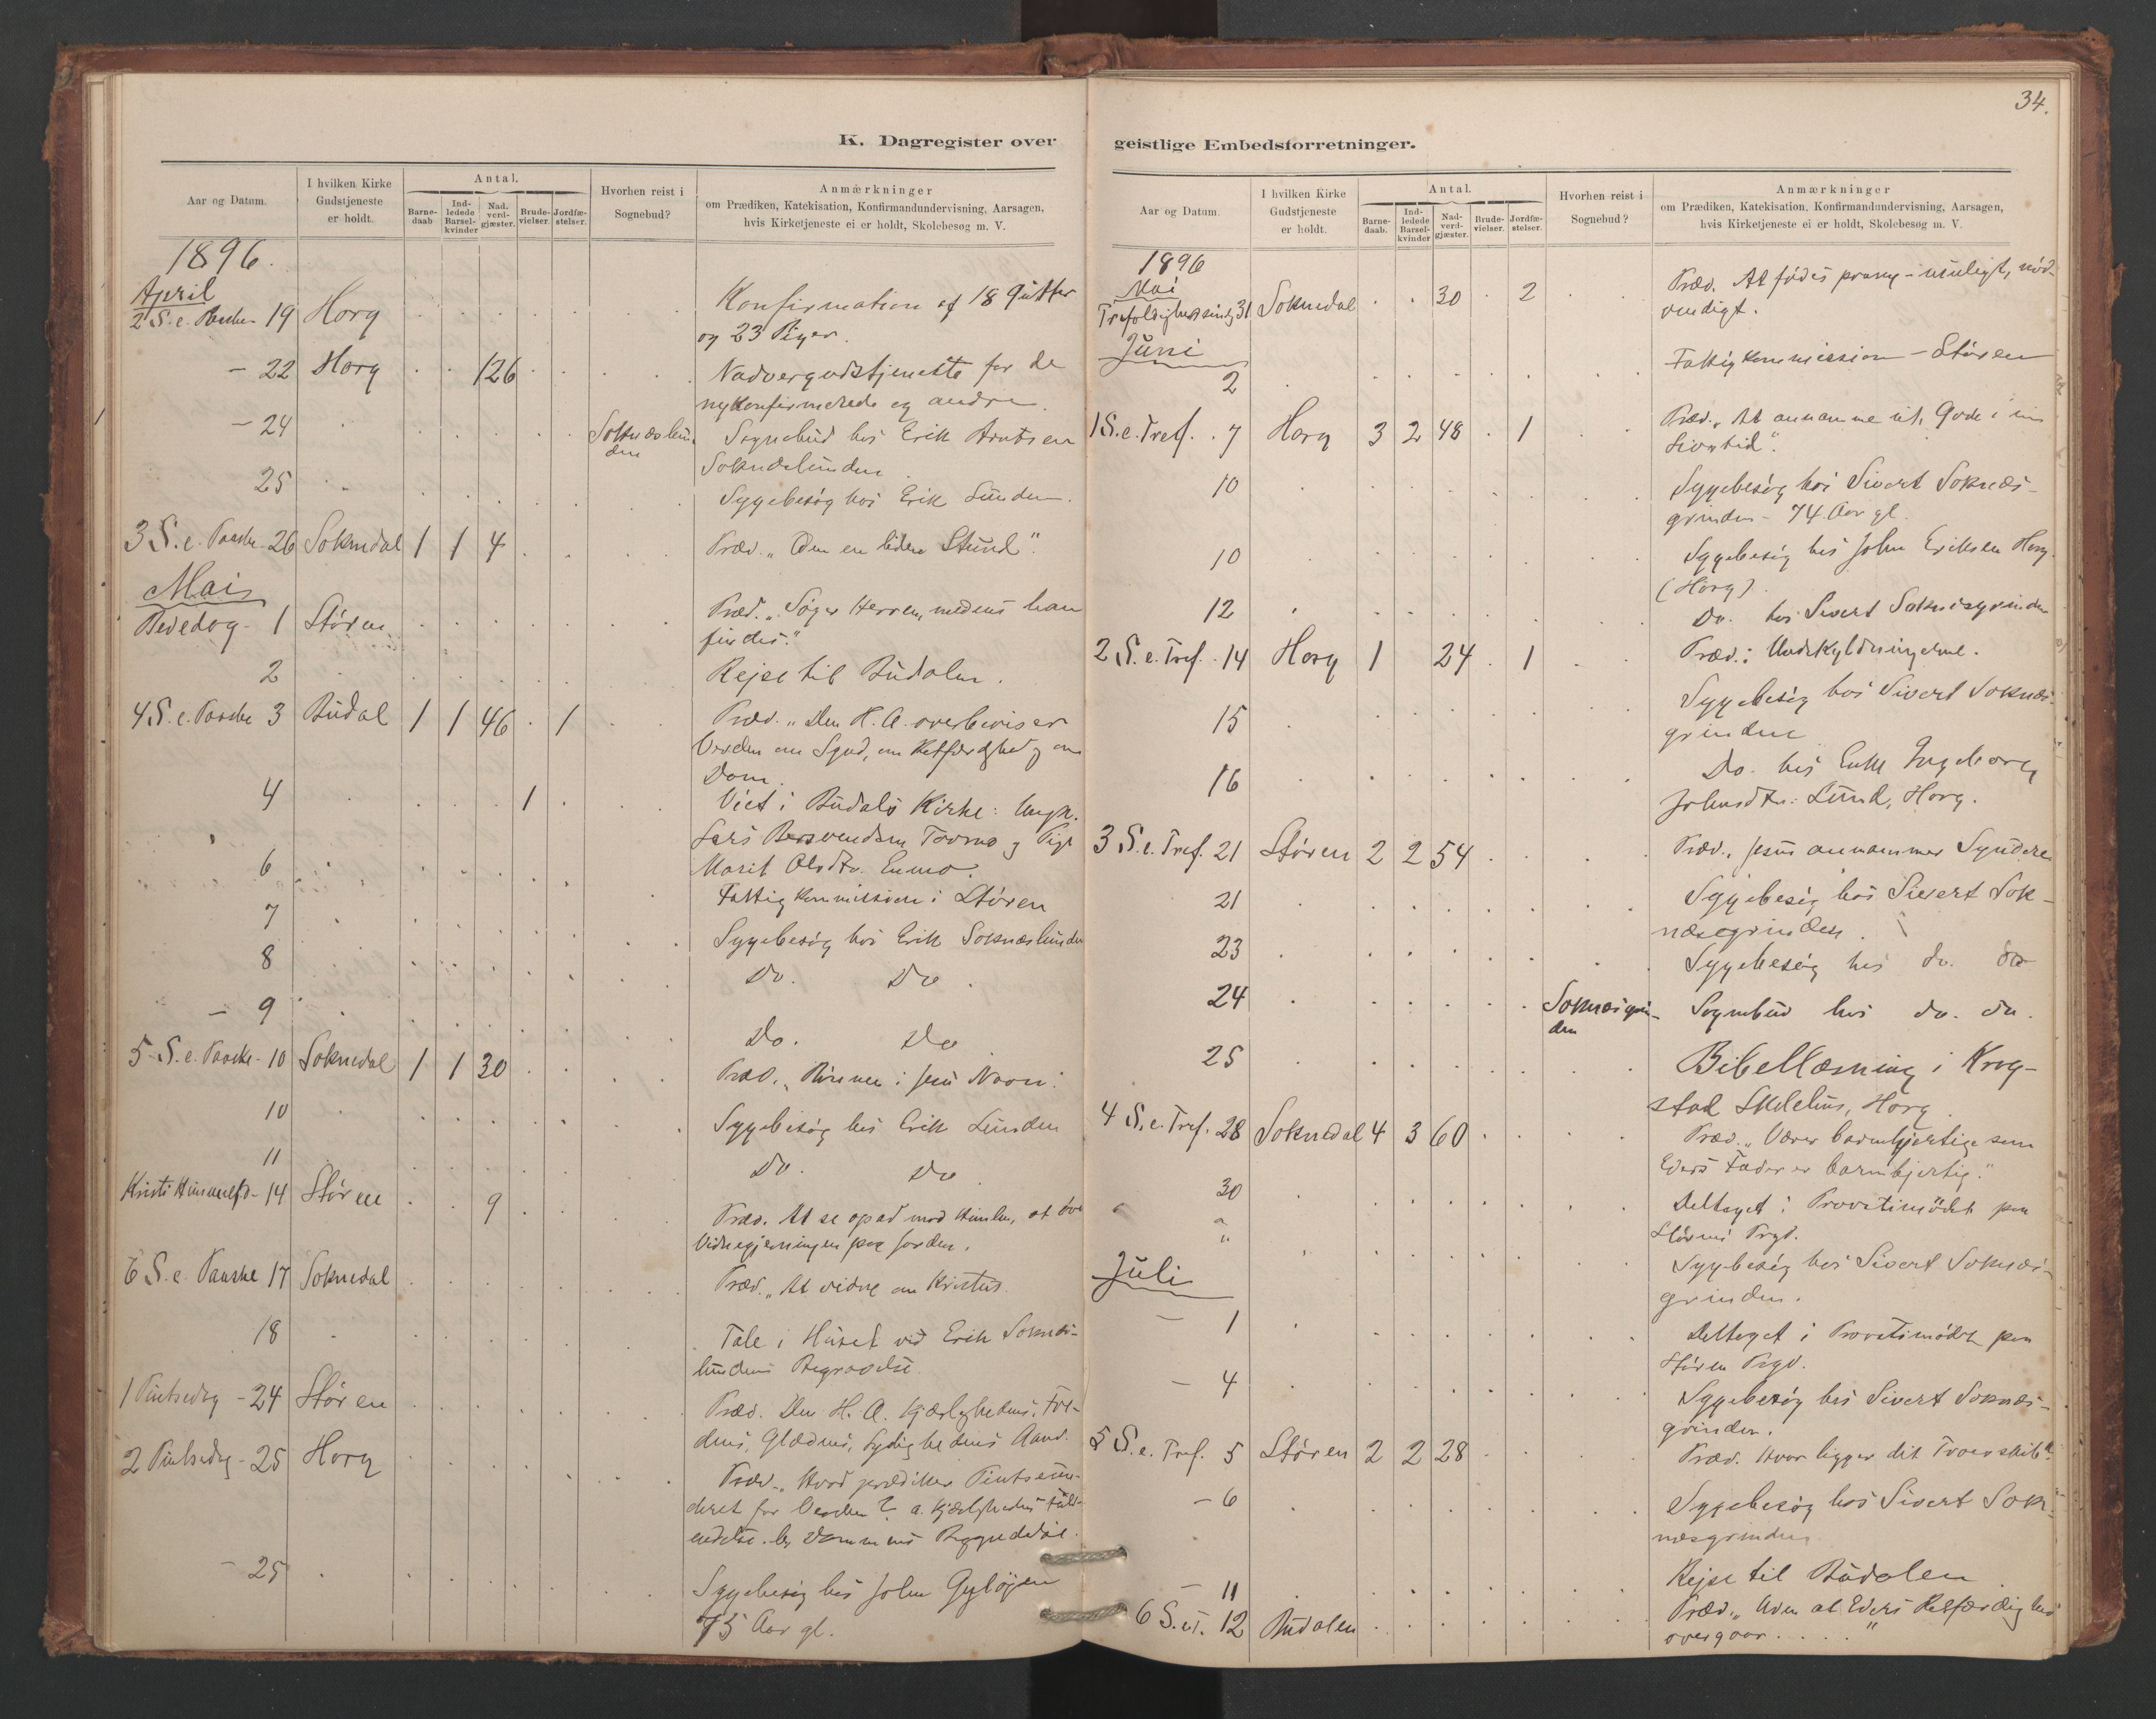 K. Dagregister over
Aar og Datum.
I hvilken Kirke Gudstjeneste er holdt.
Antal.
Barnedaab
Indledede Barselkvinder
Nad. verdgjæster.
Brudevielser.
Jordfæstelser.
Hvorhen reist i Sognebud?
Anmærkninger
om Prædiken, Katekisation, Konfirmandundervisning, Aarsagen,
hvis Kirketjeneste ei er holdt, Skolebesøg m. V.
1896.
April
2 S. e. Paaske 19 Horg Konfirmation af 18 Gutter
og 23 Piger.
- 22 Horg 126 Nadvergudstjeneste for de
nykonfirmerede og andre.
- 24 Soknæslunden Sognebud hos Erik Arntsen
Soknæslunden
25 Sygebesøg hos Erik Lunden.
3 S. e. Paaske 26 Soknedal 1 1 4 Præd. „Om en liden Stund".
Mai
Bededag - 1 Støren Præd. „Søger Herren, medens han
findes."
2 Rejse til Budalen.
4 S. e. Paaske 3 Budal 1 1 46 1 Præd. „Den H. A. overbeviser
Verden om Synd, om Retfærdighed og om
Dom.
4 1 Viet i Budals Kirke: Ungk.
Lars Bersvendsen Tovmo og Pige
Marit Olsdtr. Enmo.
6 Fattigkommission i Støren
7 Sygebesøg hos Erik Soknæslunden
8 Do. Do.
- 9 Do. Do
5 S. e. Paaske - 10 Soknedal 1 1 30 Præd. „Bønnen i Jesu Navn".
10 Sygebesøg hos Erik Lunden
11 Do. Do
Kristi Himmelfd - 14 Støren 9 Præd. At se opad mod Himlen, at øve
Vidnegjerningen paa Jorden.
6 S. e. Paaske 17 Soknedal Præd. „At vidne om Kristus.
18 Tale i Huset ved Erik Soknæs-
lundens Begravelse.
1 Pintsedag - 24 Støren Præd. Den H. A. Kjærlighedens, Fre-
dens, Glædens, Lydighedens Aand.
2 Pintsedag - 25 Horg Præd. „Hvad prædiker Pintseun-
deret for Verden? a. Kjærlighedens Fuld-
endelse. b. Dommens Begyndelse.
- 25 Sygebesøg hos John Gyløyen
75 Aar gl.
34.
geistlige Embedsforretninger.
Aar og Datum.
I hvilken Kirke Gudstjeneste er holdt.
Antal.
Barnedaab.
Indledede Barselkvinder
Nadverdgjæster.
Brudevielser.
Jordfæstelser.
Hvorhen reist i Sognebud?
Anmærkninger
om Prædiken, Katekisation, Konfirmandundervisning, Aarsagen,
hvis Kirketjeneste ei er holdt, Skolebesøg m. V.
1896
Mai
Trefoldighedssøndg 31 Soknedal 30 2 Præd. At fødes paany - muligt, nød-
vendigt.
Juni
2 Fattigkommission - Støren
1 S. e. Tref. 7 Horg 3 2 48 1 Præd. „At annamme sit Gode i sin
Livstid".
10 Sygebesøg hos Sivert Soknæs-
grinden - 74 Aar gl.
10 Sygebesøg hos John Eriksen Horg
(Horg).
12 Do. hos Sivert Soknæsgrinden
2 S. e. Tref. 14 Horg 1 24 1 Præd.: Undskyldningerne.
15 Sygebesøg hos Sivert Soknæs-
grinden
16 Do. hos Enke Ingeborg
Johnsdtr. Lund, Horg.
3 S. e. Tref. 21 Støren 2 2 54 Præd. Jesus annammer Syndere
21 Sygebesøg hos Sivert Sok-
næsgrinden.
23 Sygebesøg hos do. do
24 Soknæsgrinden Sognebud hos do. do.
25 Bibellæsning i Krog-
stad Skolehus, Horg.
4 S. e. Tref. 28 Soknedal 4 3 60 Præd. „Værer barmhjertige som
Eders Fader er barmhjertig."
30 Deltaget i Provstimødet paa
Størens Prgd.
" " Sygebesøg hos Sivert Soknæs-
grinden.
Juli
- 1 Deltaget i Provstimødet paa
Støren Prgd.
- 4 Sygebesøg hos Sivert Soknæs-
grinden.
5 S. e. Tref. 5 Støren 2 2 28 Præd. Hvor ligger dit Troesskib?
- 6 Sygebesøg hos Sivert Sok-
næsgrinden
- 11 Rejse til Budalen.
6 S. e. T. 12 Budalen Præd. „Uden at Eders Retfærdighed
overgaar . . . . "